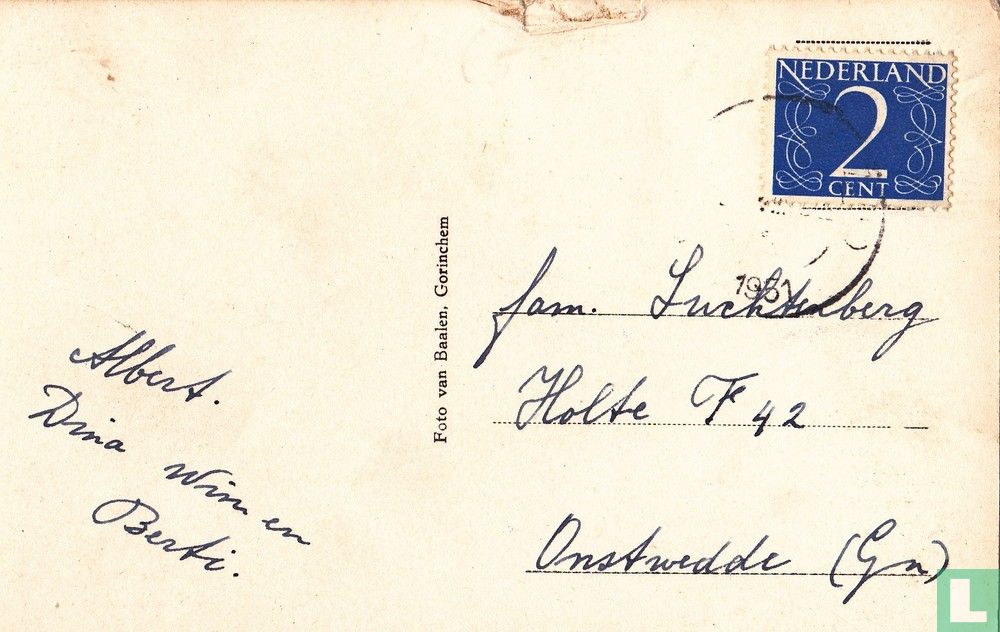 Albert.
Dina Wim en
Berti.
Foto van Baalen, Gorinchem
NEDERLAND
2
CENT
1951
fam. Luchtenberg
Holte F 42
Onstwedde (Gn)
L